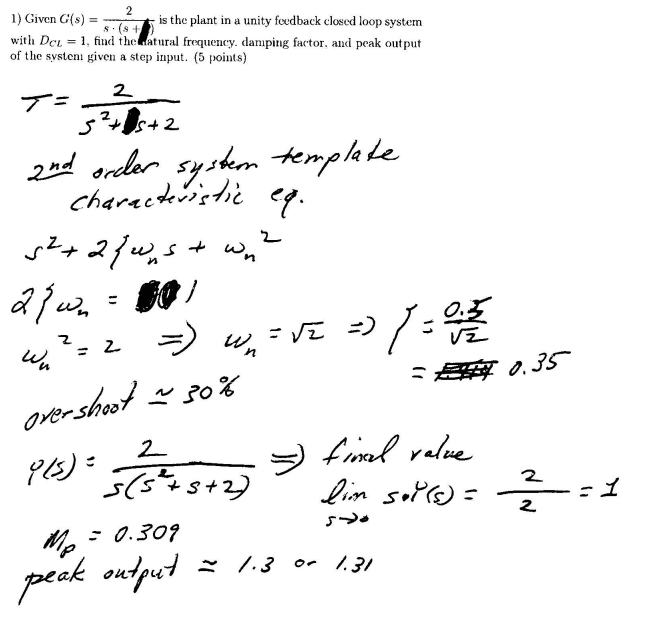 1) Given G(s) = 2 / s · (s + ) is the plant in a unity feedback closed loop system
with D_CL = 1, find the natural frequency, damping factor, and peak output
of the system given a step input. (5 points)
T = 2 / s² + s + 2
2nd order system template
characteristic eq.
s² + 2ζω_n s + ω_n²
2ζω_n = 1
ω_n² = 2 ⇒ ω_n = √2 ⇒ ζ = 0.5 / √2
= 0.35
overshoot ≃ 30%
Y(s) = 2 / s(s² + s + 2) ⇒ final value
lim s→0 s·Y(s) = 2 / 2 = 1
M_p = 0.309
peak output ≃ 1.3 or 1.31